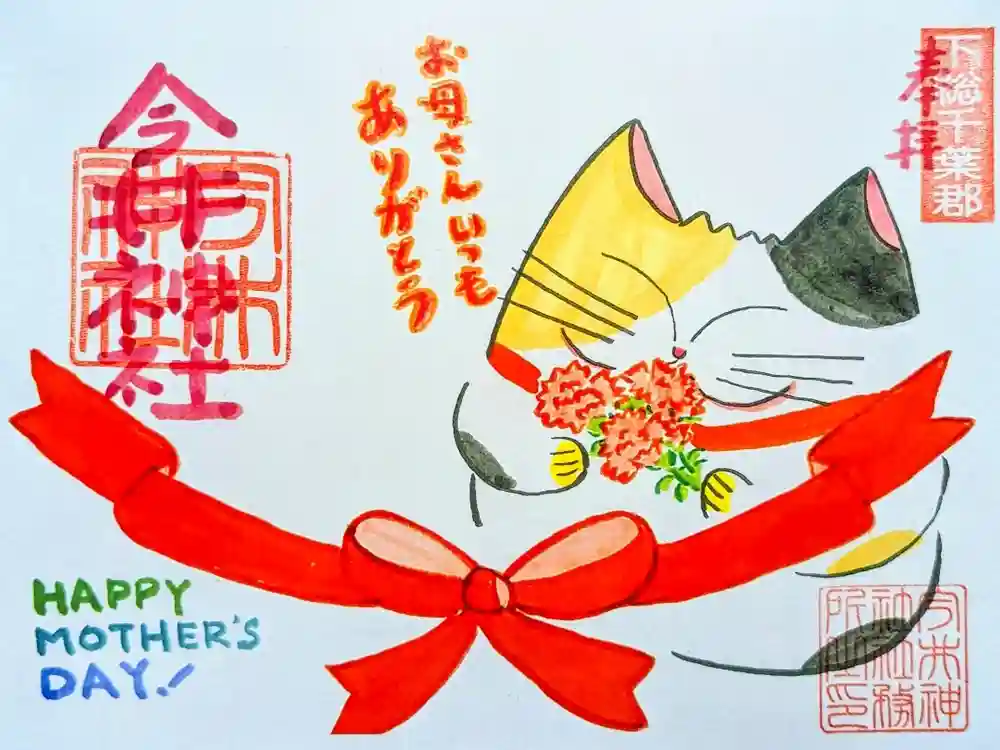 下総千葉郡
奉拝
お母さんいつも
ありがとう
今井神社
今井神社
今井神社社務所之印
HAPPY
MOTHER'S
DAY!